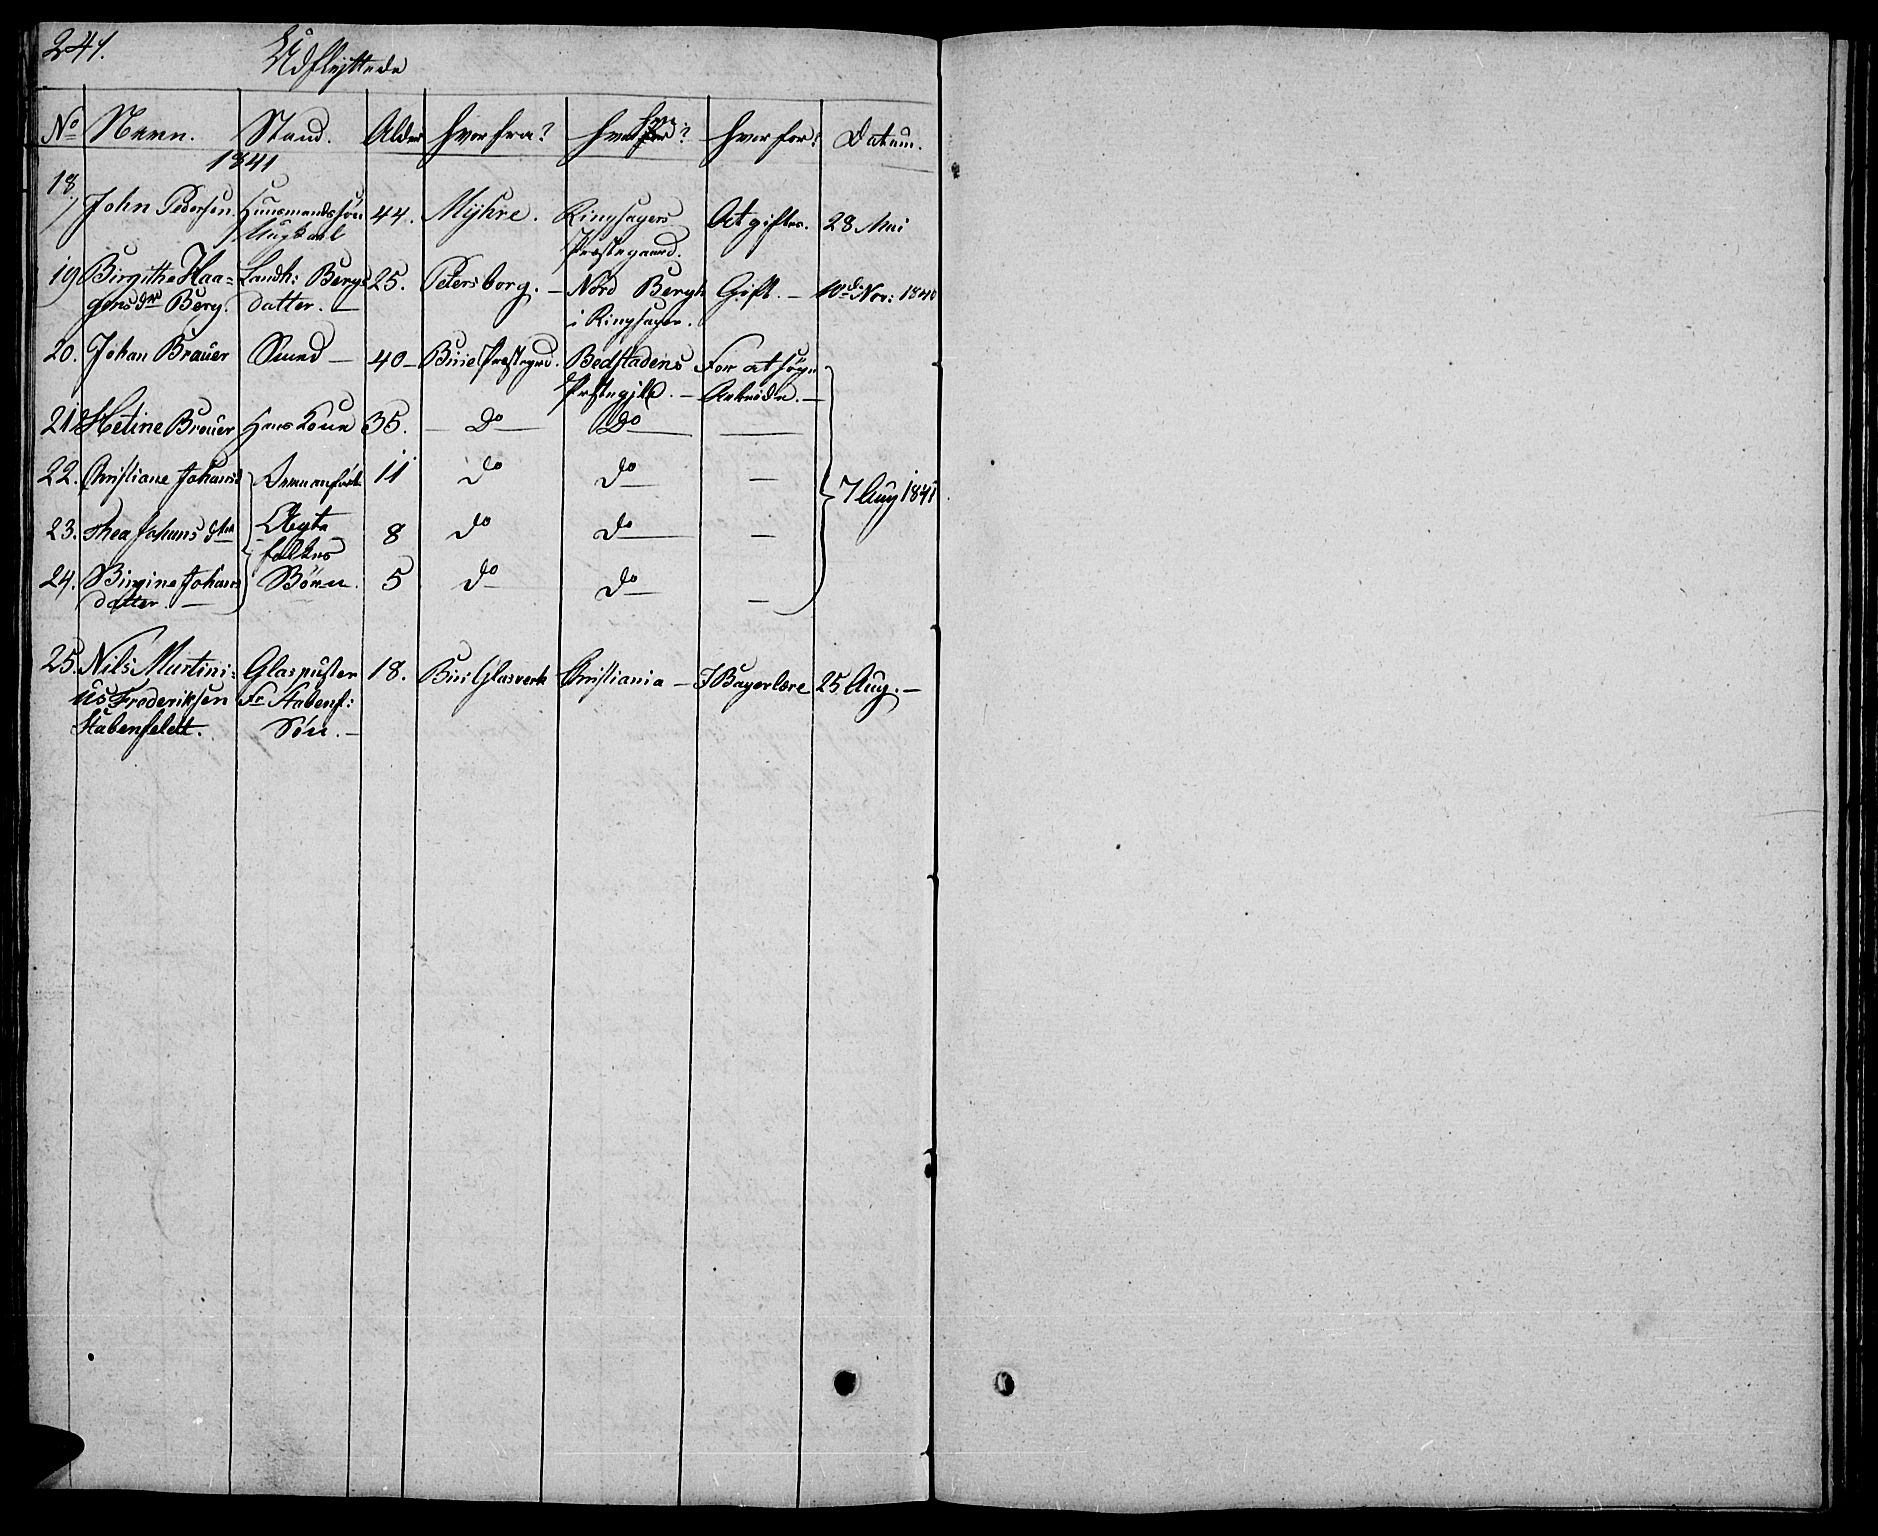 241.
Udflyttede
No Navn. Stand. Alder hvorfra? hvorhen? hvorfor? Datum.
1841
18 John Pedersen. Huusmandssøn 44. Myhre. Ringsagers At giftes. 28 Mai
Ungkarl Præstegaard.
19 Birgitthe Haa= Landh: Bergs 25. Petersborg. – Nord Bergh Gift. – 10de Nov: 1840
gensdtr Berg. datter. – i Ringsager.
20. Johan Brauer Smed – 40 – Birie Præstegrd. Bedstadens For at søge
Præstegjeld. – Arbeide. –
21. Hetine Brauer Hans Kone 35. – Do – Do – –
22. Christiane Johansd Svenanførte 11 do do – –
7 Aug 1841
23. Thea Johansdtr Ægte 8 do do – –
folkes
24. Birgine Johans Børn. 5 do do – –
datter. –
25. Nils Martini= Glaspuster 18. Biri Glasverk Christiania – I Bagerlære 25 Aug. –
us Frederiksen Fr. Stabenf:
Stabenfeldt. Søn. –